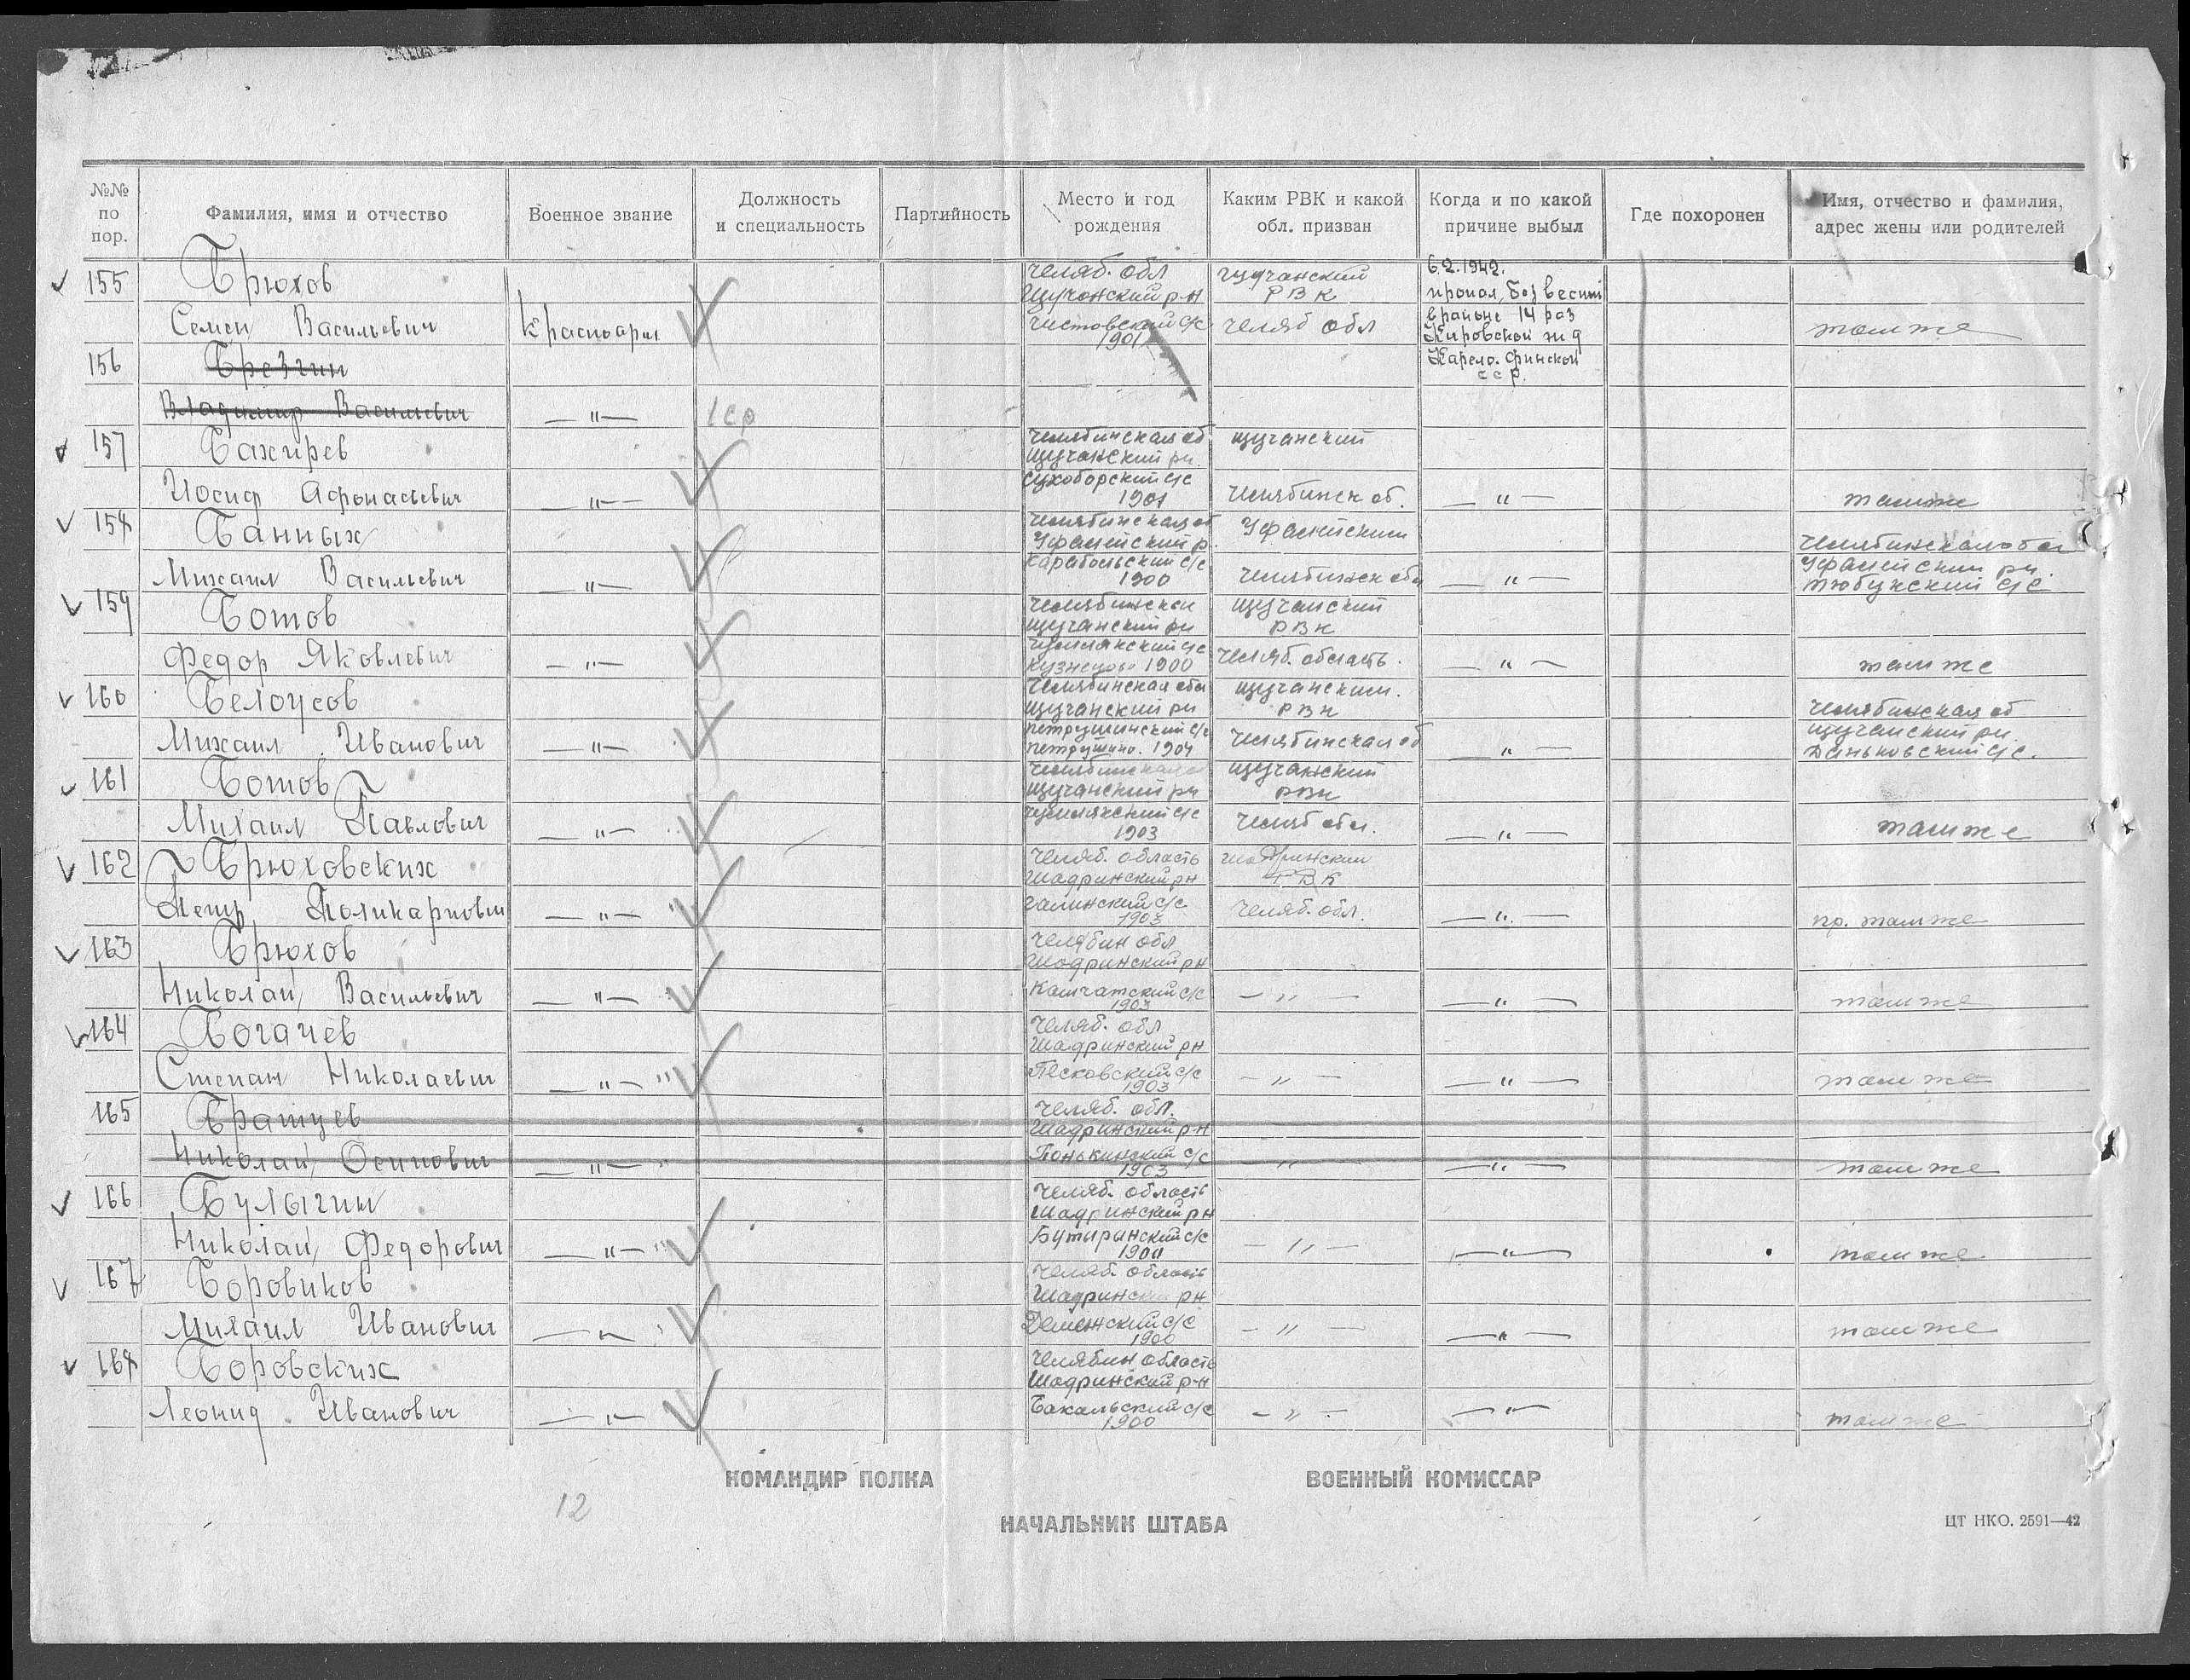 №№ по пор.
Фамилия, имя и отчество
Военное звание
Должность и специальность
Партийность
Место и год рождения
Каким РВК и какой обл. призван
Когда и по какой причине выбыл
Где похоронен
Имя, отчество и фамилия, адрес жены или родителей
155 Брюхов челяб. обл щучанский 6.2.1942.
Щучанский р-н РВК пропал без вести
Семен Васильевич Красноарм чистовский с/с челяб обл в районе 14 раз там же
1901 Кировской ж д
156 Брезгин Карело. финской
сср.
Владимир Васильевич —"— 1ср
157 Бахирев Челябинская об щучанский
щучанский рн.
Иосиф Афонасьевич —"— Сухоборский с/с Челябинск об. —"— там же
1901
158 Банных Челябинская об Уфалейский
Уфалейский р. Челябинская обл
Михаил Васильевич —"— Карабольский с/с Челябинск обл —"— Уфалейский рн.
1900 Тюбукский с/с
159 Ботов Челябинская щучанский
щучанский рн РВК
Федор Яковлевич —"— чумлякский с/с Челяб. область. —"— там же
Кузнецово 1900
160 Белоусов Челябинская обл щучанский.
щучанский рн РВК Челябинская об
Михаил Иванович —"— петрушинский с/с Челябинская об —"— щучанский рн.
петрушино. 1904 Даньковский с/с.
161 Ботов Челябинская щучанский
щучанский рн РВК
Михаил Павлович —"— чумлякский с/с Челяб обл. —"— там же
1903
162 Брюховских Челяб. область шадринский
Шадринский рн РВК
Петр Поликарпович —"— галинский с/с Челяб. обл. —"— пр. там же
1903
163 Брюхов Челябин обл
Шадринский рн
Николай Васильевич —"— Камчатский с/с —"— —"— там же
1903
164 Богачев Челяб. обл
Шадринский рн
Степан Николаевич —"— Песковский с/с —"— —"— там же
1903
165 Братцев Челяб. обл.
Шадринский р-н
Николай Осипович —"— Понькинский с/с —"— —"— там же
1903
166 Булыгин Челяб. область
Шадринский рн
Николай Федорович —"— Бутыринский с/с —"— —"— там же
1900
167 Боровиков Челяб. область
Шадринский рн
Михаил Иванович —"— с/с —"— —"— там же
1900
168 Боровских Челябин область
Шадринский р-н
Леонид Иванович —"— Бакальский с/с —"— —"— там же
1900
КОМАНДИР ПОЛКА ВОЕННЫЙ КОМИССАР
12
НАЧАЛЬНИК ШТАБА
ЦТ НКО. 2591—42